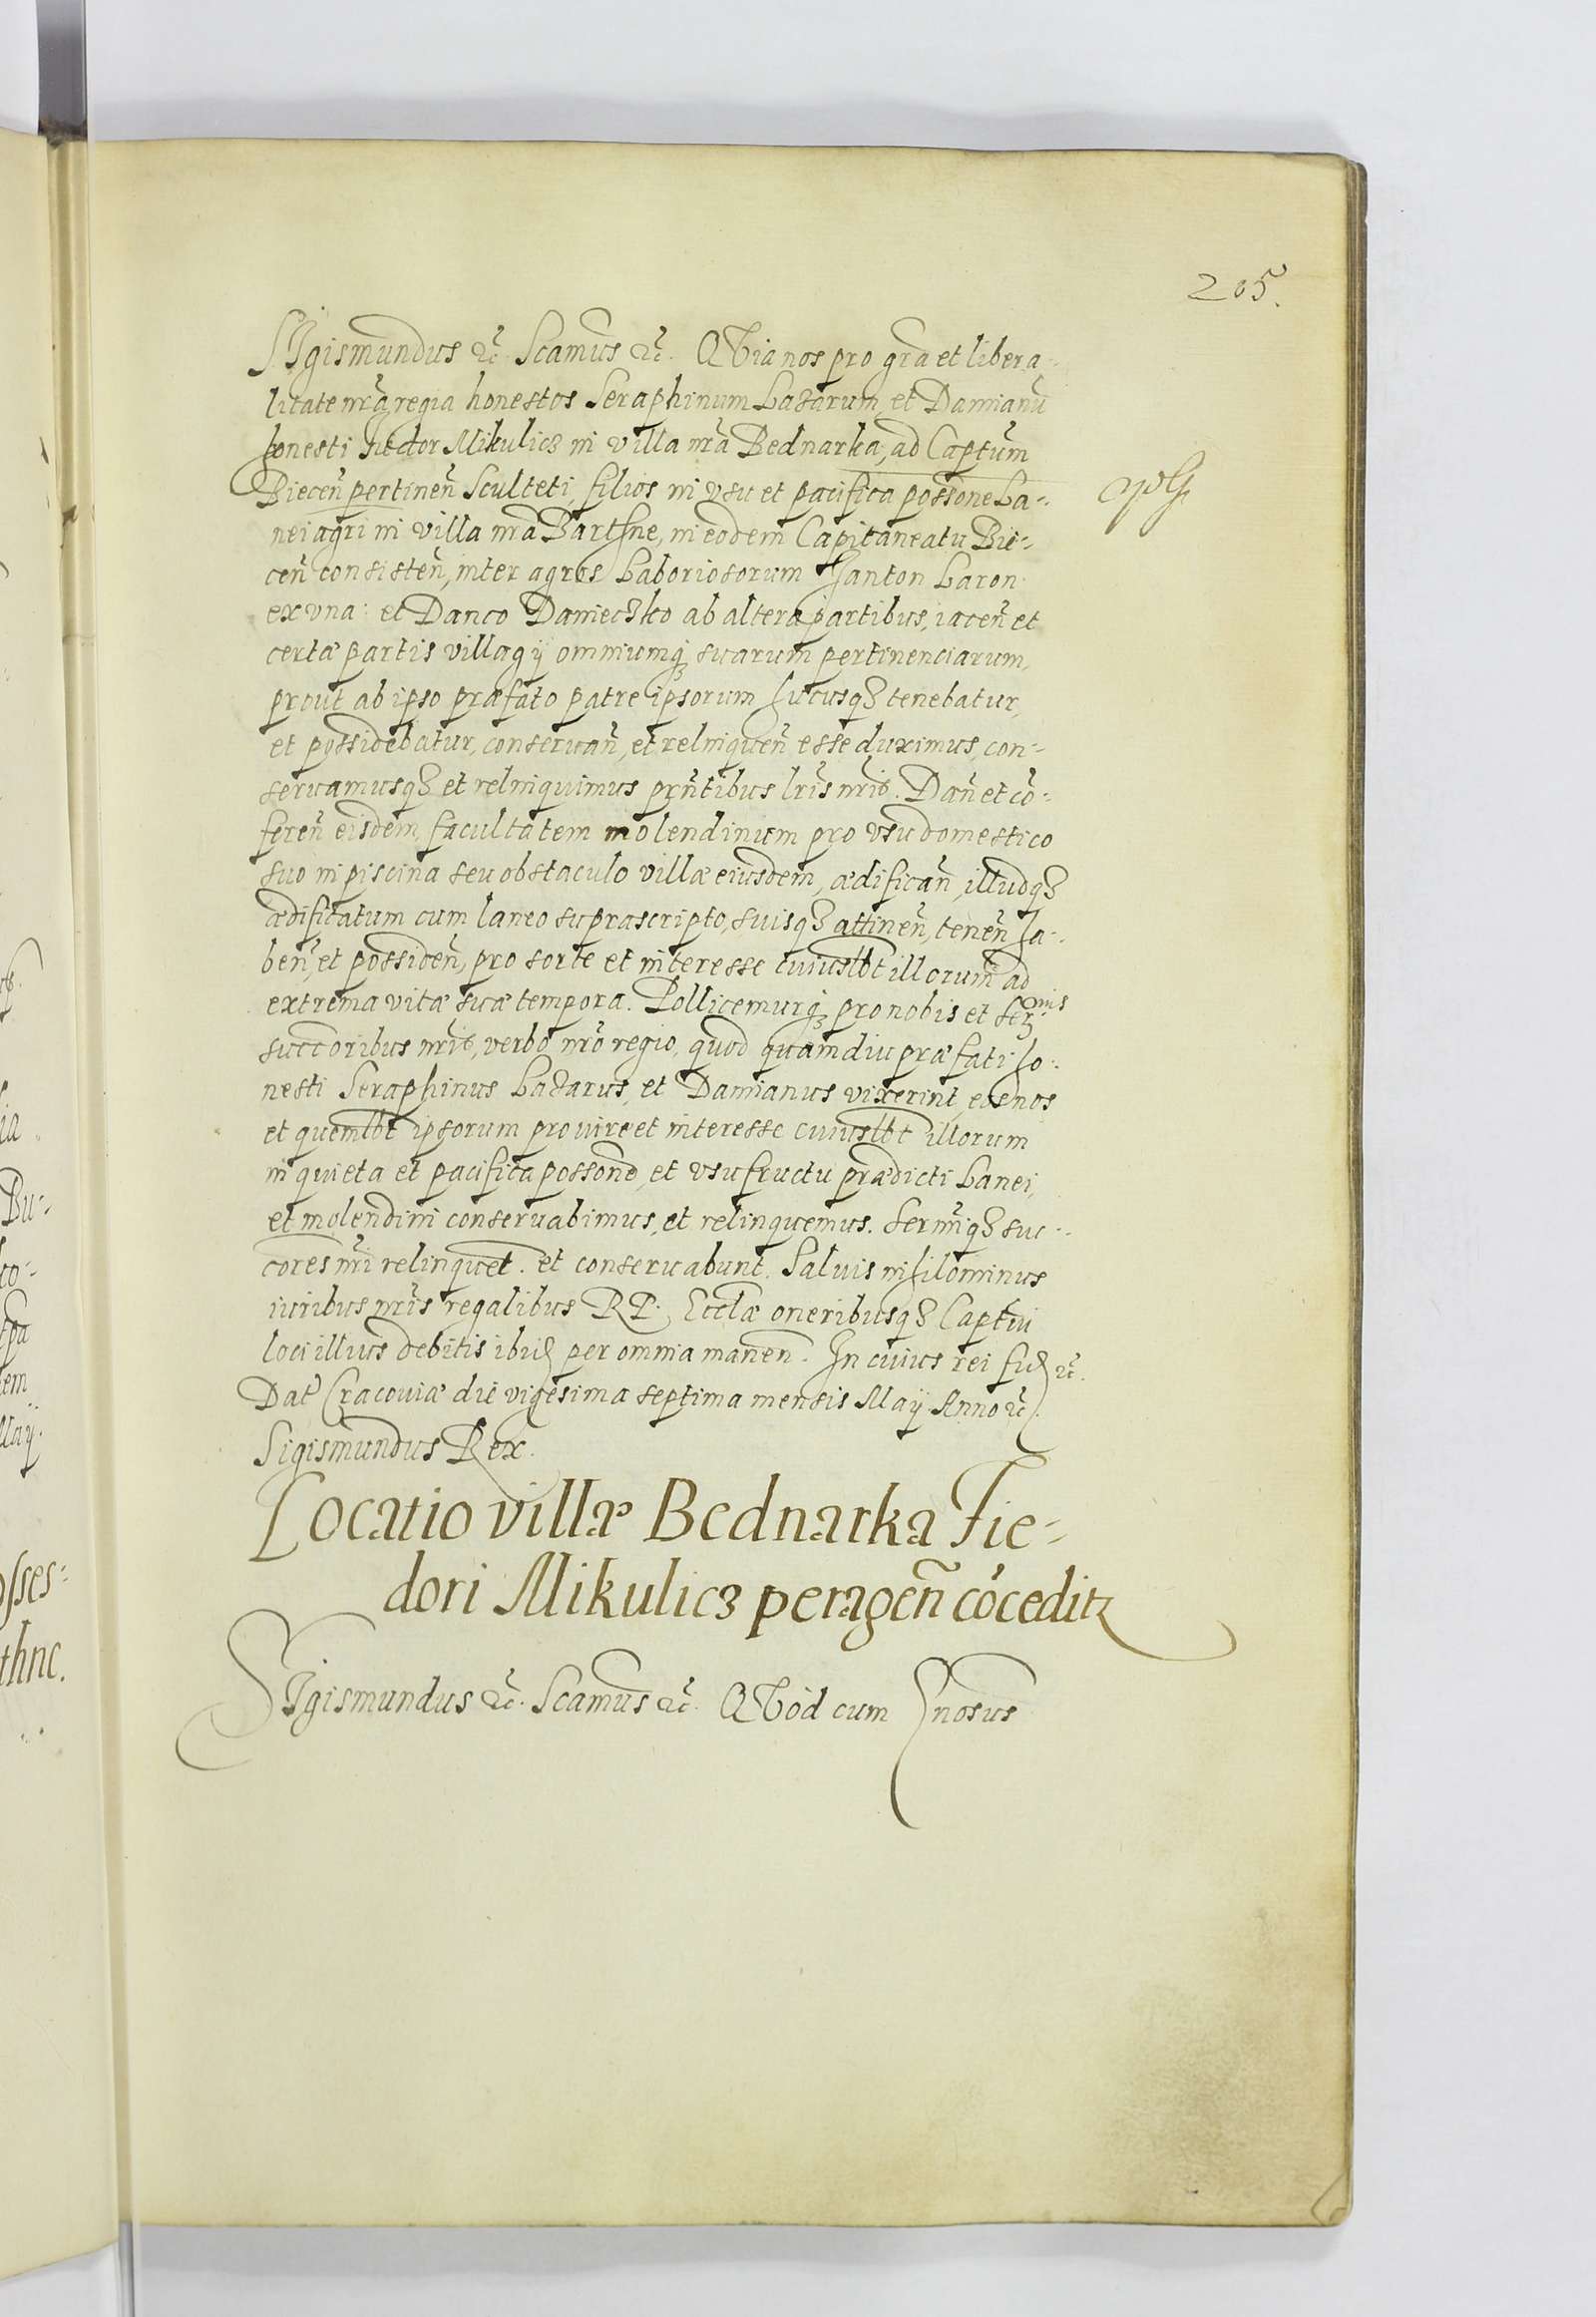 205.
SIgismundus etc̃. Scamus etc̃. QVia nos pro gr̃a et libera-
litate nr̃a regia honestos Seraphinum Lazarum, et Damianũ
honesti Fiedor Mikulicz in villa nr̃a Bednarka, ad Captũm
Biecen̄ pertinen̄ Sculteti, filios in vsu et pacifica possone La-
nei agri in villa nr̃a Barthne, in eodem Capitaneatu Bie-
cen̄ consisten̄, inter agros Laboriosorum Hanton Laron
ex vna: et Danco Danieczko ab altera partibus, iacen̄ et
certæ partis villagÿ omniumq; suarum pertinenciarum,
prout ab ipso præfato patre ipsorum hucusq3 tenebatur,
et possidebatur, conseruan̄, et relinquen̄ esse duximus, con-
seruamusq3 et relinquimus prn̄tibus lr̃is nr̃is. Dan̄ et cõ-
feren̄ eisdem, facultatem molendinum pro vsu domestico
suo in piscina seu obstaculo villæ eiusdem, ædifican̄, illudq3
ædificatum cum laneo suprascripto, suisq3 attinen̄, tenen̄ ha-
ben̄, et possiden̄, pro sorte et interesse cuiuslbt illorum ad
extrema vitæ suæ tempora. Pollicemurq; pro nobis et Ser̃mis
succoribus nr̃is, verbo nr̃o regio, quod quamdiu præfati ho-
nesti Seraphinus Lazarus, et Damianus vixerint, eosnos
et quemlbt ipsorum pro iure et interesse cuiuslbt illorum
in quieta et pacifica possone, et vsufructu prædicti Lanei,
et molendini conseruabimus, et relinquemus. Ser̃miq3 suc-
cores nr̃i relinquet. et conseruabunt. Saluis nihilominus
iuribus nr̃is regalibus RP. Eccl̃æ oneribusq3 Captui
loci illius debitis ibid per omnia manen̄. In cuius rei fid etc̃.
Dat̃ Cracouiæ die vigesima septima mensis Maÿ Anno etc̃.
Sigismundus Rex.
Locatio villæ Bednarka Fie-
dori Mikulicz peragen̄ cõceditz
SIgismundus etc̃. Scamus etc̃. QVod cum Gnosus